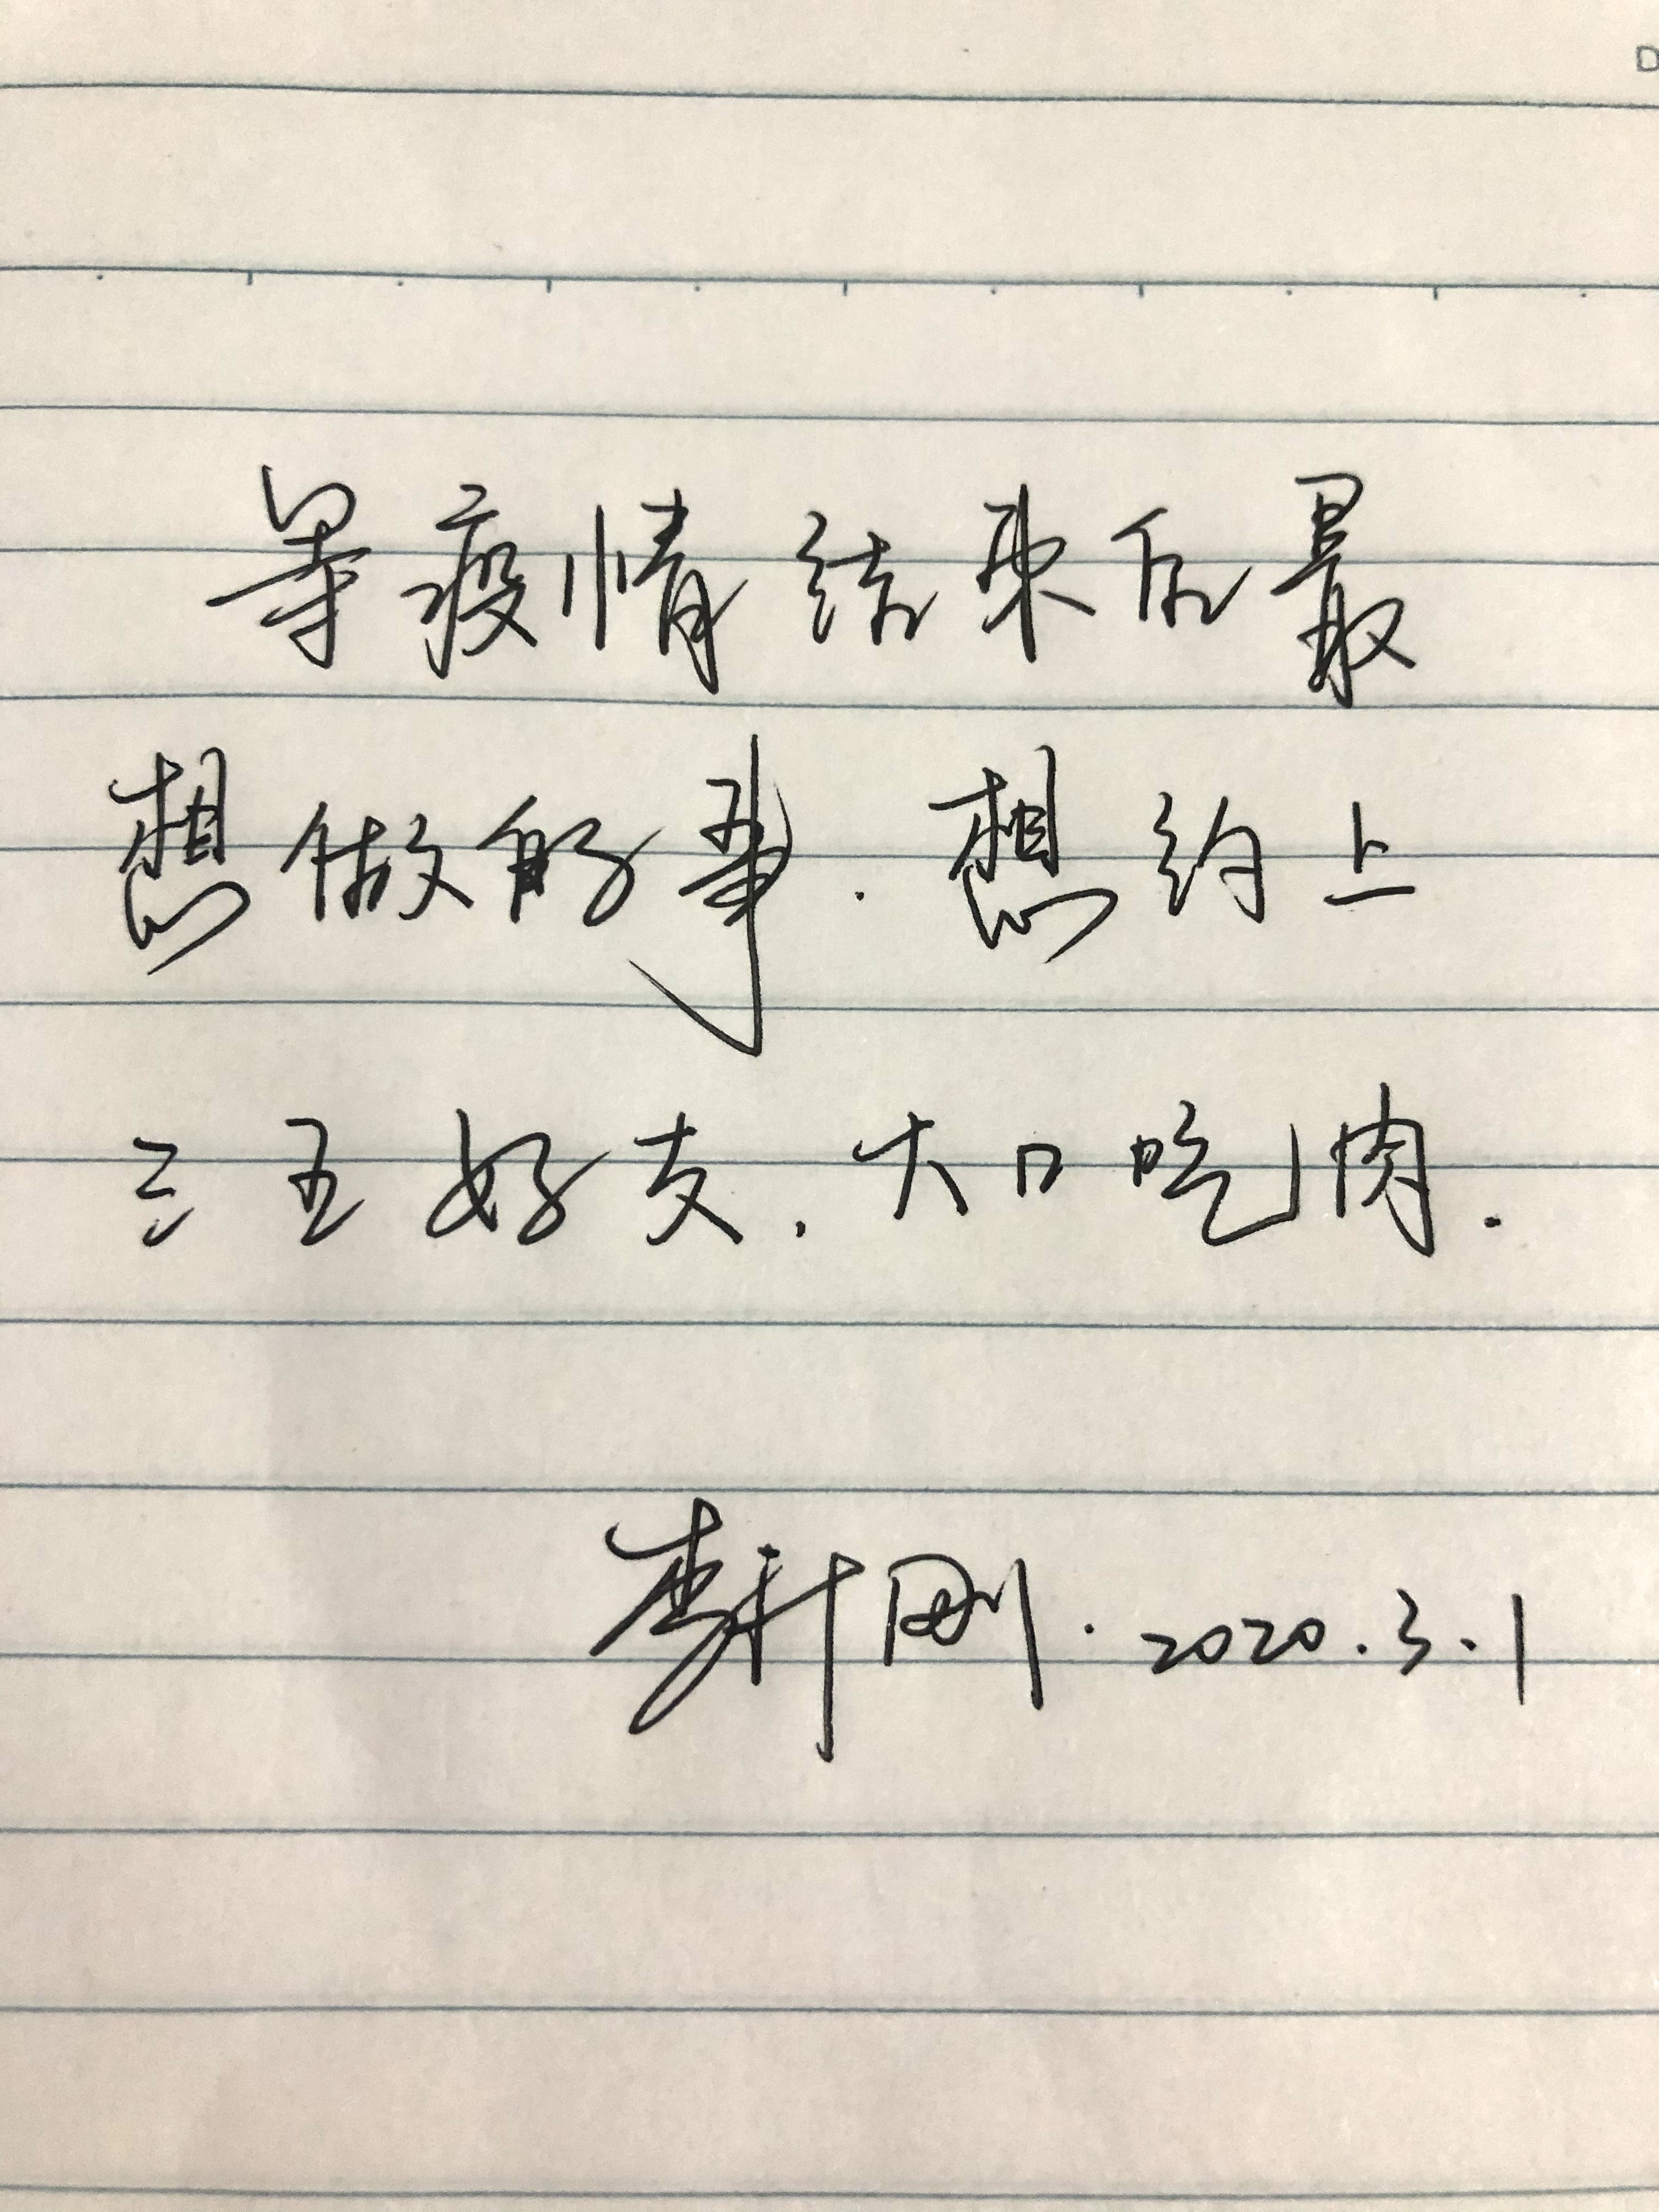 D
等疫情结束后最
想做的事.想约上
三五好友.大口吃肉.
李新刚.2020.3.1